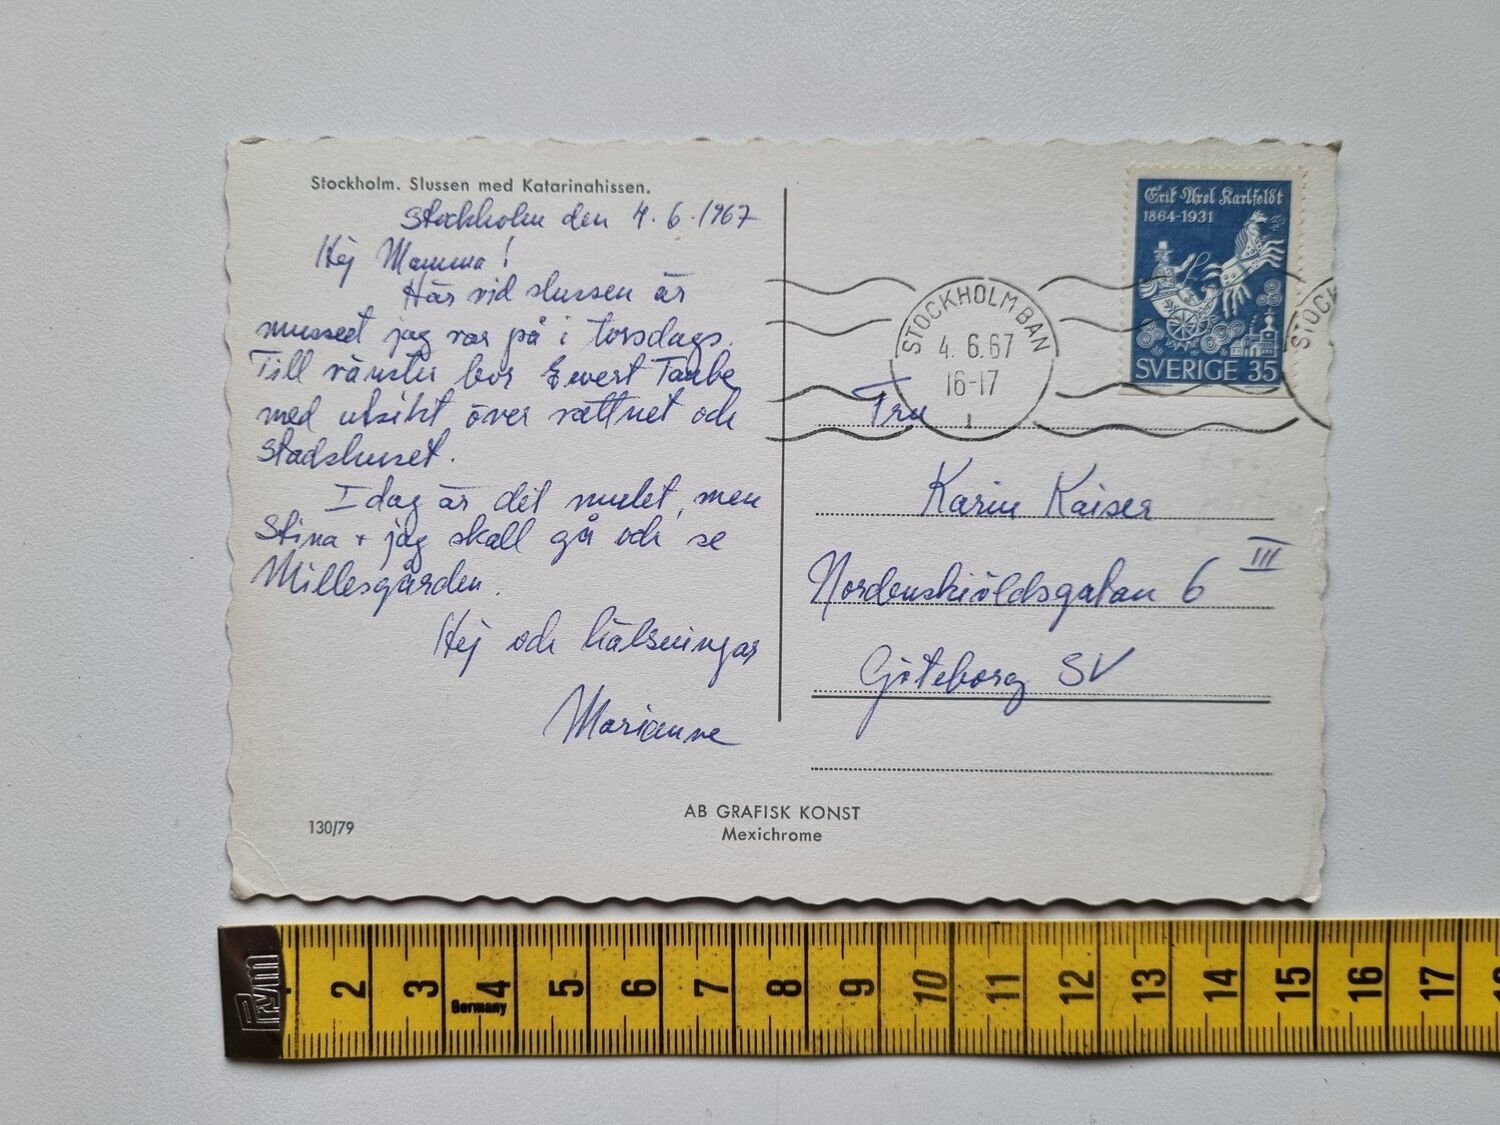 Stockholm. Slussen med Katarinahissen.
Stockholm den 4.6.1967
Hej Mamma!
Här vid slussen är
museet jag var på i torsdags.
Till vänster bor Evert Taube
med utsikt över vattnet och
Stadshuset.
I dag är det mulet, men
Stina + jag skall gå och se
Millesgården.
Hej och hälsningar
Marianne
130/79
AB GRAFISK KONST
Mexichrome
Erik Axel Karlfeldt
1864-1931
SVERIGE 35
STOCKHOLM BAN
4. 6. 67
16-17
1
STOCK
Fru
Karin Kaiser
Nordenskiöldsgatan 6 III
Göteborg SV
Prym
2 3 4 5 6 7 8 9 10 11 12 13 14 15 16 17 18
Germany